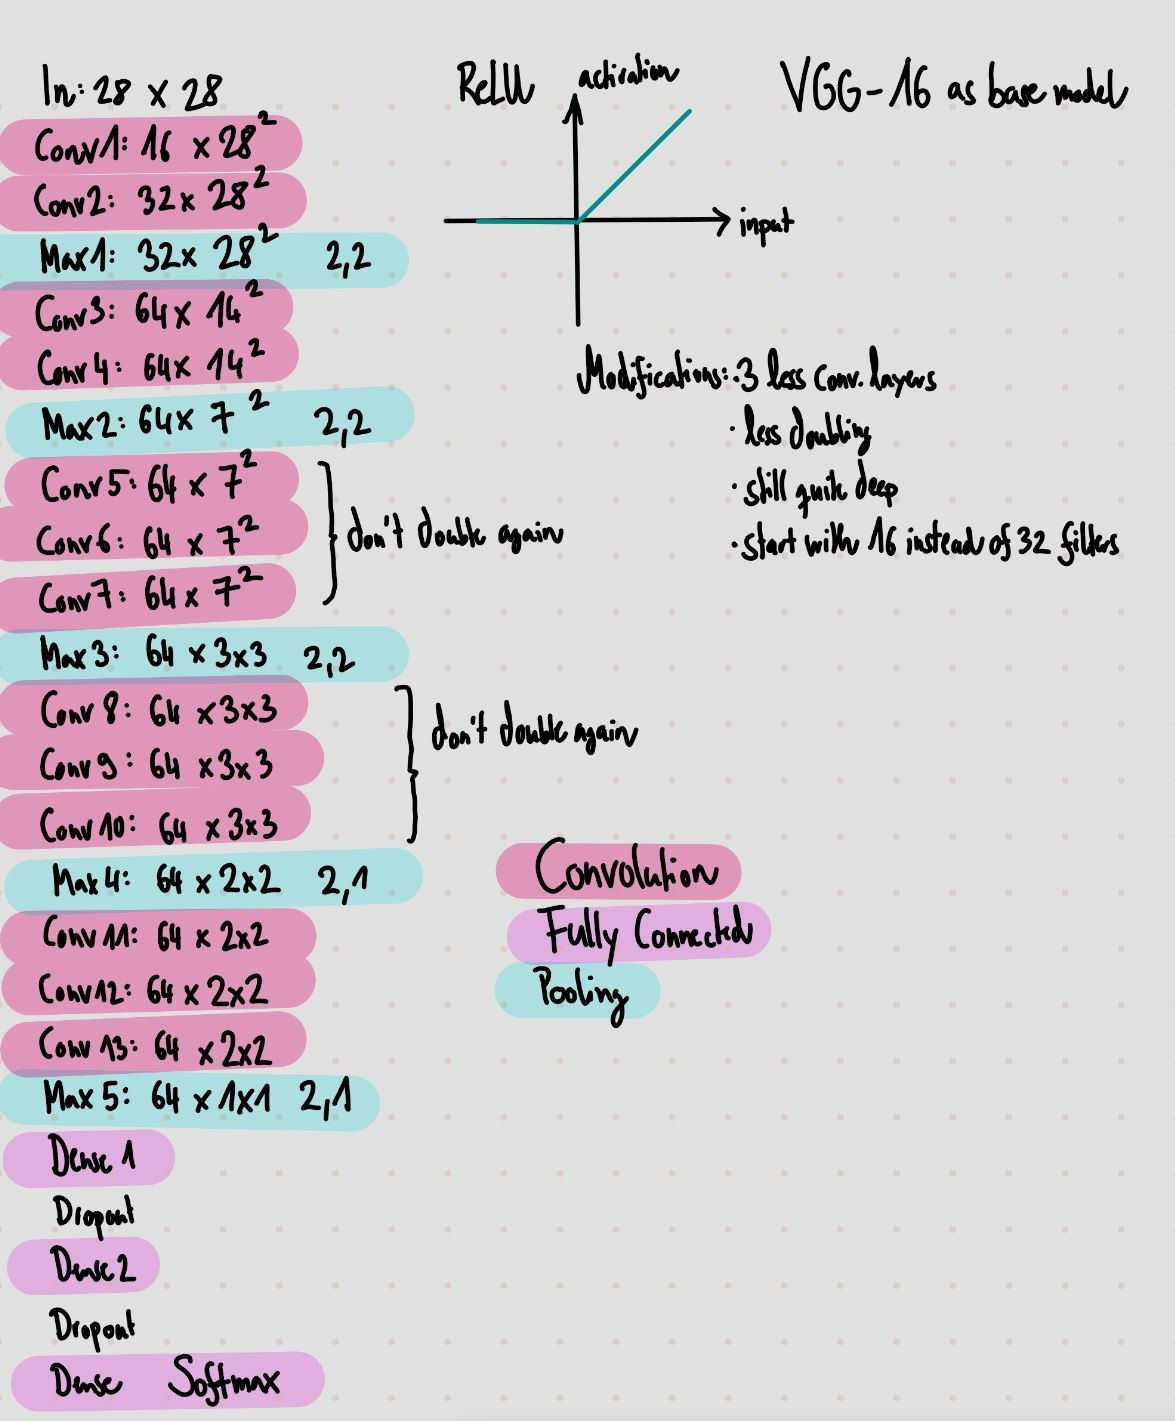 In: 28 x 28
Conv1: 16 x 28²
Conv2: 32 x 28²
Max1: 32 x 28² 2,2
Conv3: 64 x 14²
Conv4: 64 x 14²
Max2: 64 x 7² 2,2
Conv5: 64 x 7²
Conv6: 64 x 7²
Conv7: 64 x 7²
don't double again
Max3: 64 x 3x3 2,2
Conv 8: 64 x 3x3
Conv 9: 64 x 3x3
Conv 10: 64 x 3x3
don't double again
Max 4: 64 x 2x2 2,1
Conv 11: 64 x 2x2
Conv12: 64 x 2x2
Conv 13: 64 x 2x2
Max 5: 64 x 1x1 2,1
Dense 1
Dropout
Dense 2
Dropout
Dense Softmax
ReLU
activation
input
VGG-16 as base model
Modifications: · 3 less Conv. layers
· less doubling
· still quite deep
· start with 16 instead of 32 filters
Convolution
Fully Connected
Pooling